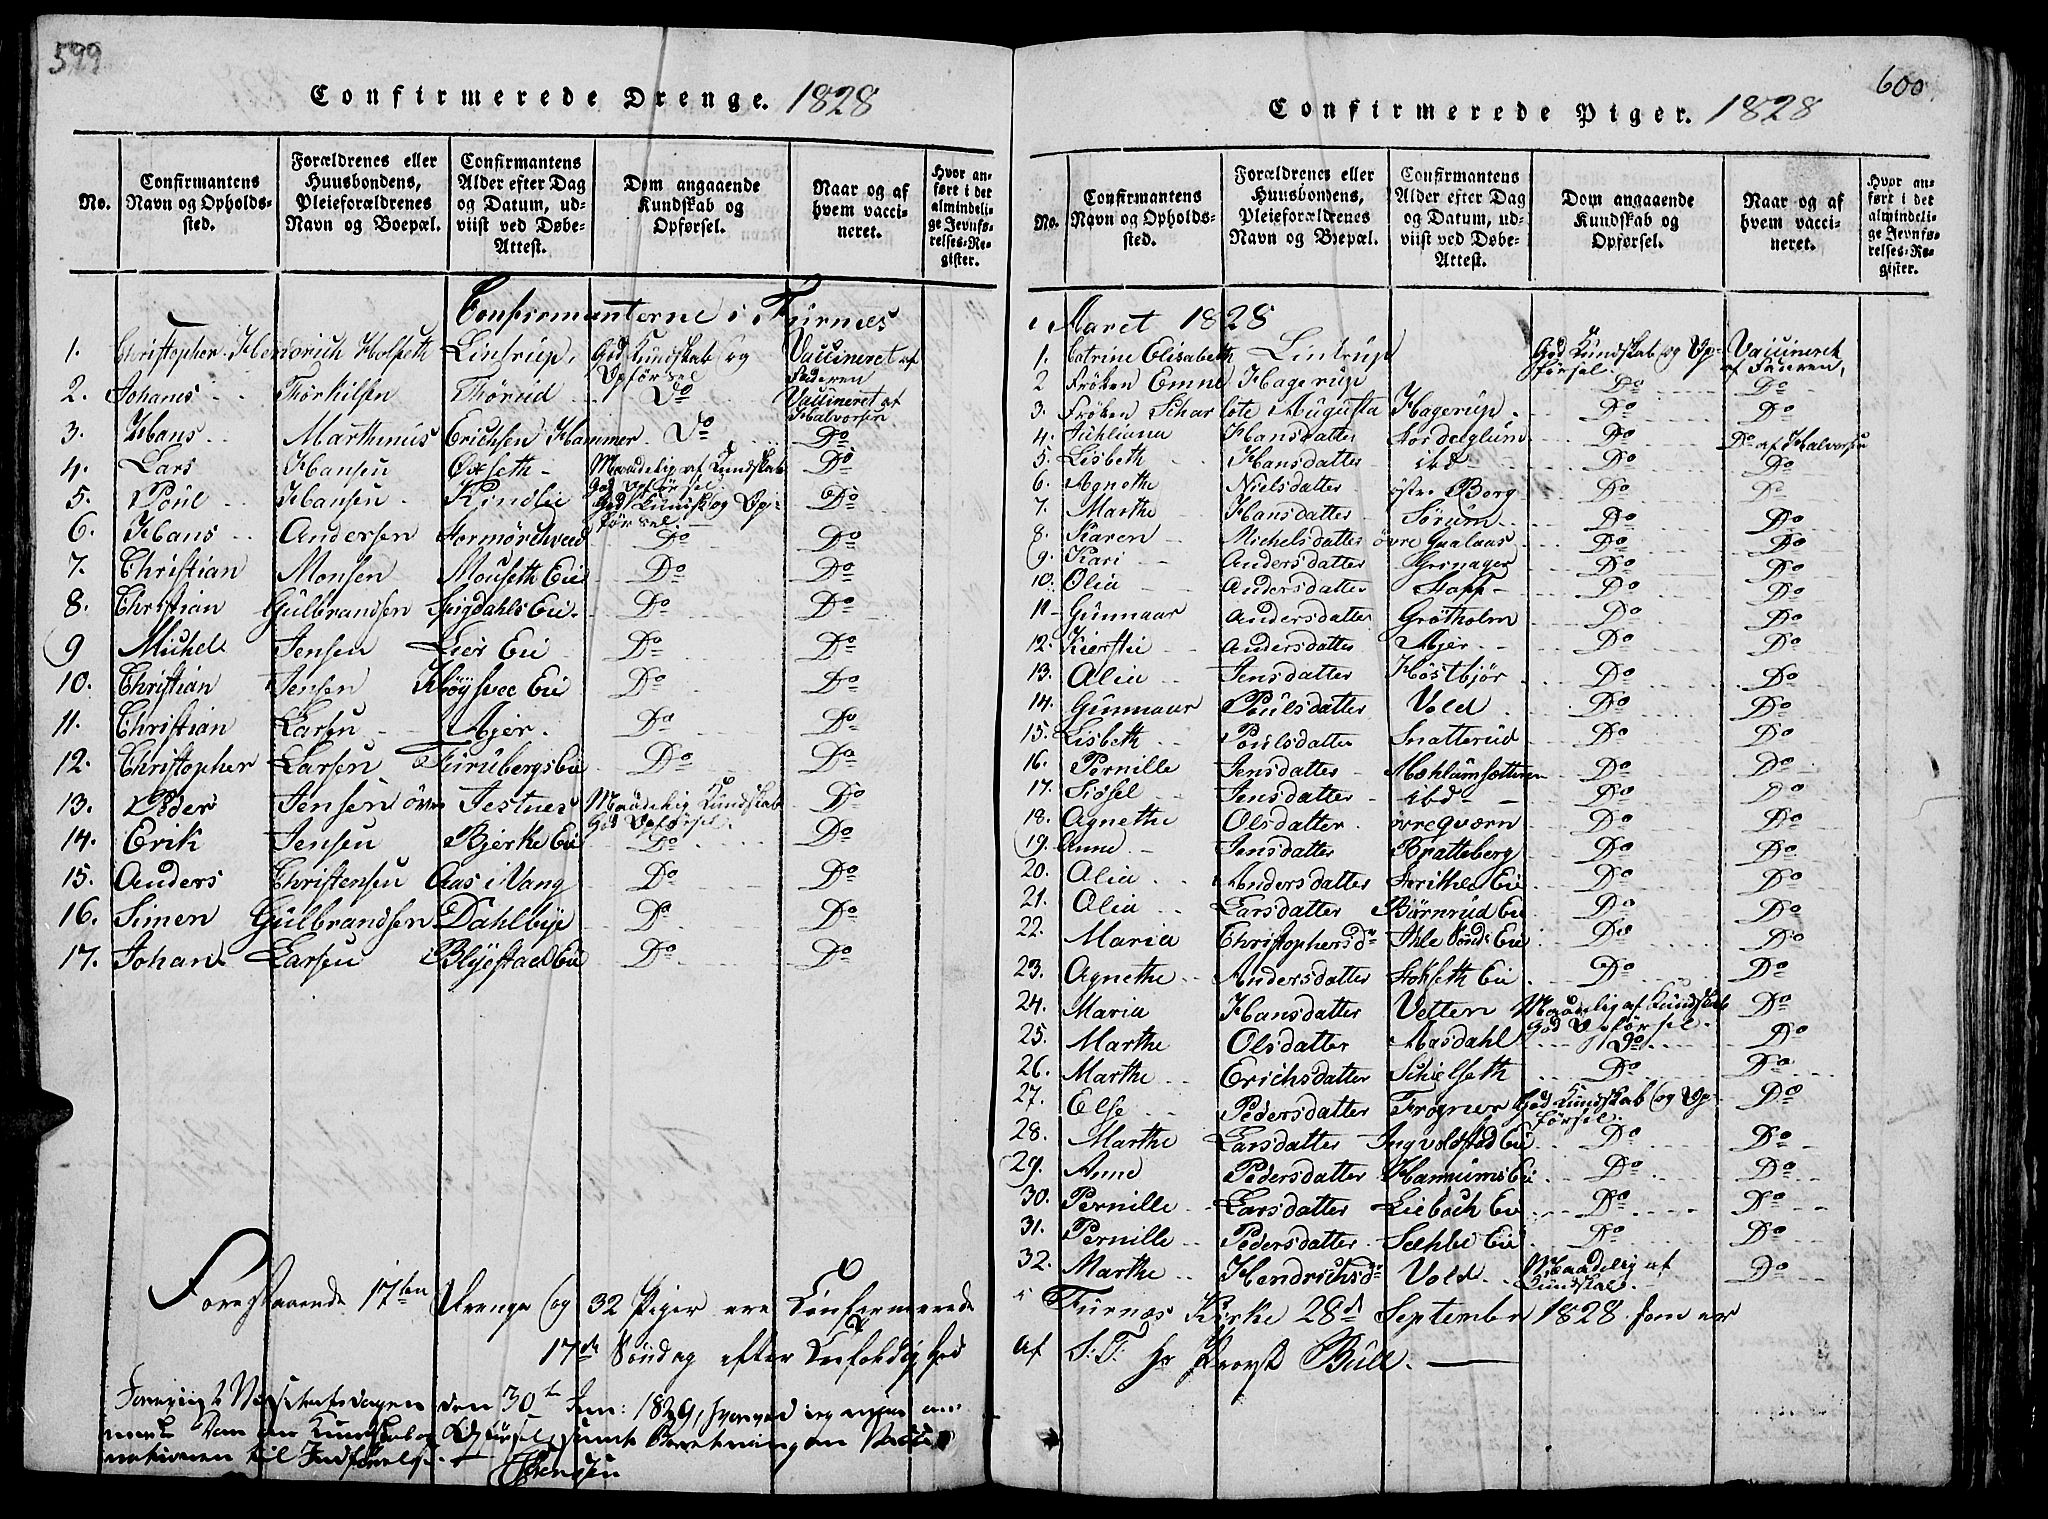 599
Confirmerede Drenge. 1828
No.
Confirmantens Navn og Opholds-sted.
Forældrenes eller Huusbondens, Pleieforældrenes Navn og Boepæl.
Confirmantens Alder efter Dag og Datum, ud-viist ved Døbe-Attest.
Dom angaaende Kundskab og Opførsel.
Naar og af hvem vacci-neret.
Hvor an-ført i det almindeli-ge Jevnfø-relses-Re-gister.
Confirmanterne i Furnes
1. Christopher Hendrich Holseth Lintrup, God Kundskab og Opførsel Vaccineret af Faderen
2. Johanes Thorkilsen Thorud Do Vaccineret af Halvorsen
3. Hans Marthinus Erichsen Hammer Do Do
4. Lars Hansen Oxseth Maadelig af Kundskab God Opførsel Do
5. Poul Hansen Kindlie God Kundsk og Opførsel Do
6. Hans Andersen Do Do
7. Christian Monsen Mouseth Eie Do Do
8. Christian Gulbrandsen Spigdahls Eie Do Do
9 Michel Jensen Lier Eie Do Do
10. Christian Jensen Høysvee Eie Do Do
11. Christian Larsen Ajer Do Do
12. Christopher Larsen Furubergs Eie Do Do
13. Peder Jensen øvre Jestnes Maadelig Kundskab God Opførsel. Do
14. Erik Jensen Bjerke Eie Do Do
15. Anders Christensen Aas i Vang Do Do
16. Simen Gulbrandsen Dahlbye Do Do
17. Johan Larsen Blystad Eie Do Do
Forestaaende 17ten Drenge og 32 Piger ere Confirmerede
17de Søndag efter
den 30te Jun: 1829,
Kundskab og Opførsel, samt
til Indførelse.
600
Confirmerede Piger. 1828
No.
Confirmantens Navn og Opholds-sted.
Forældrenes eller Huusbondens, Pleieforældrenes Navn og Boepæl.
Confirmantens Alder efter Dag og Datum, ud-viist ved Døbe-Attest.
Dom angaaende Kundskab og Opførsel.
Naar og af hvem vacci-neret.
Hvor an-ført i det almindeli-ge Jevnfø-relses-Re-gister.
i Aaret 1828
1. Catrine Elisabeth Lintrup God Kundskab og Opførsel. Vaccineret af Faderen,
2 Frøken Emne Hagerup Do Do
3. Frøken Scharlote Augusta Hagerup. Do Do
4. Juhliana Hansdatter Do Do af Halvorsen
5. Lisbeth Hansdatter ibd Do Do
6. Agnethe Nielsdatter østre Berg Do Do
7. Marthe Hansdatter Sørum Do Do
8. Karen Michelsdatter øvre Gaalaas Do Do
9. Kari Andersdatter Grønager Do Do
10. Olia Andersdatter Stapp Do Do
11 Gunnaar Andersdatter Grøtholm Do Do
12. Kierstie Andersdatter Ajer Do Do
13. Alia Jensdatter Høstbjør Do Do
14. Gunnaar Poulsdatter Vold Do Do
15. Lisbeth Poulsdatter Snatterud Do Do
16. Pernille Jensdatter Mæhlumsætteren Do Do
17. Sidsel Jensdatter ibd Do Do
18. Agnethe Olsdatter øvre qværn Do Do
19. Anne Jensdatter Bratteberg Do Do
20. Alia Andersdatter Do Do
21. Alia Larsdatter Bjørnrud Eie Do Do
22. Maria Christophersdr Do Do
23. Agnethe Andersdatter Stokseth Eie Do Do
24. Maria Hansdatter Velten Maadelig af Kundskab God Opførsel. Do
25. Marthe Olsdatter Aasdahl Do Do
26. Marthe Erichsdatter Schielseth Do Do
27. Else Pedersdatter Frogner God Kundskab og Opførsel. Do
28. Marthe Larsdatter Ingvoldstad Eie Do Do
29. Anne Pedersdatter Hannums Eie Do Do
30. Pernille Larsdatter Liebøch Eie Do Do
31. Pernille Pedersdatter Sæhle Eie Do Do
32. Marthe Hendrichsdr Vold Maadelig af Kundskab. Do
Furnes Kirke 28de September 1828
af S: T: Hr Provst Bull.